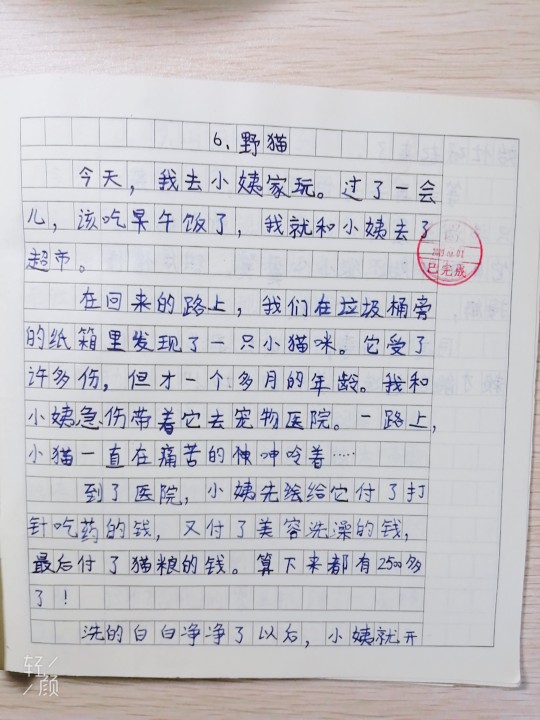 6、野猫
今天，我去小姨家玩。过了一会
儿，该吃早午饭了，我就和小姨去了
超市。
已完成
在回来的路上，我们在垃圾桶旁
的纸箱里发现了一只小猫咪。它受了
许多伤，但才一个多月的年龄。我和
小姨急伤带着它去宠物医院。一路上，
小猫一直在痛苦的呻吟着……
到了医院，小姨先给它付了打
针吃药的钱，又付了美容洗澡的钱，
最后付了猫粮的钱。算下来都有2500多
了！
洗的白白净净了以后，小姨就开
轻颜